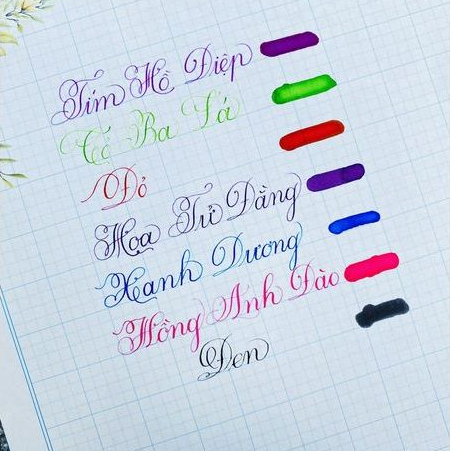 Tím Hồ Điệp
Cỏ Ba Lá
Đỏ
Hoa Tử Đằng
Xanh Dương
Hồng Anh Đào
Đen